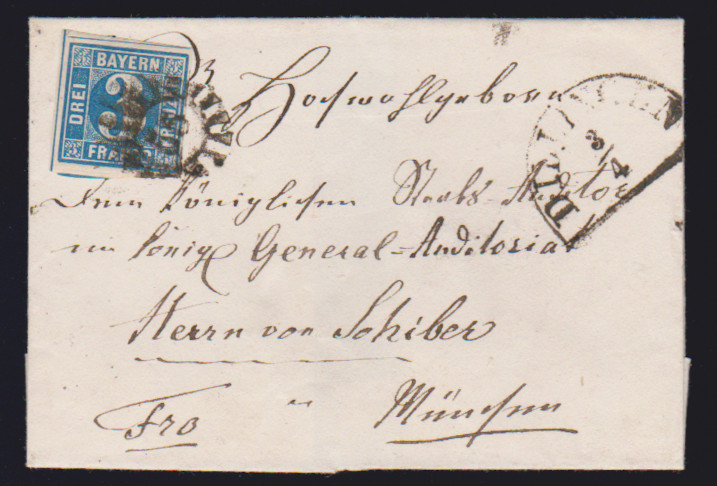 BAYERN
DREI
3
FRANCO
3
Hochwohlgeboren
DILLINGEN
3/4
Dem Königlichen Stabs-Auditor
im königl General-Auditoriat
Herrn von Schiber
Fro München